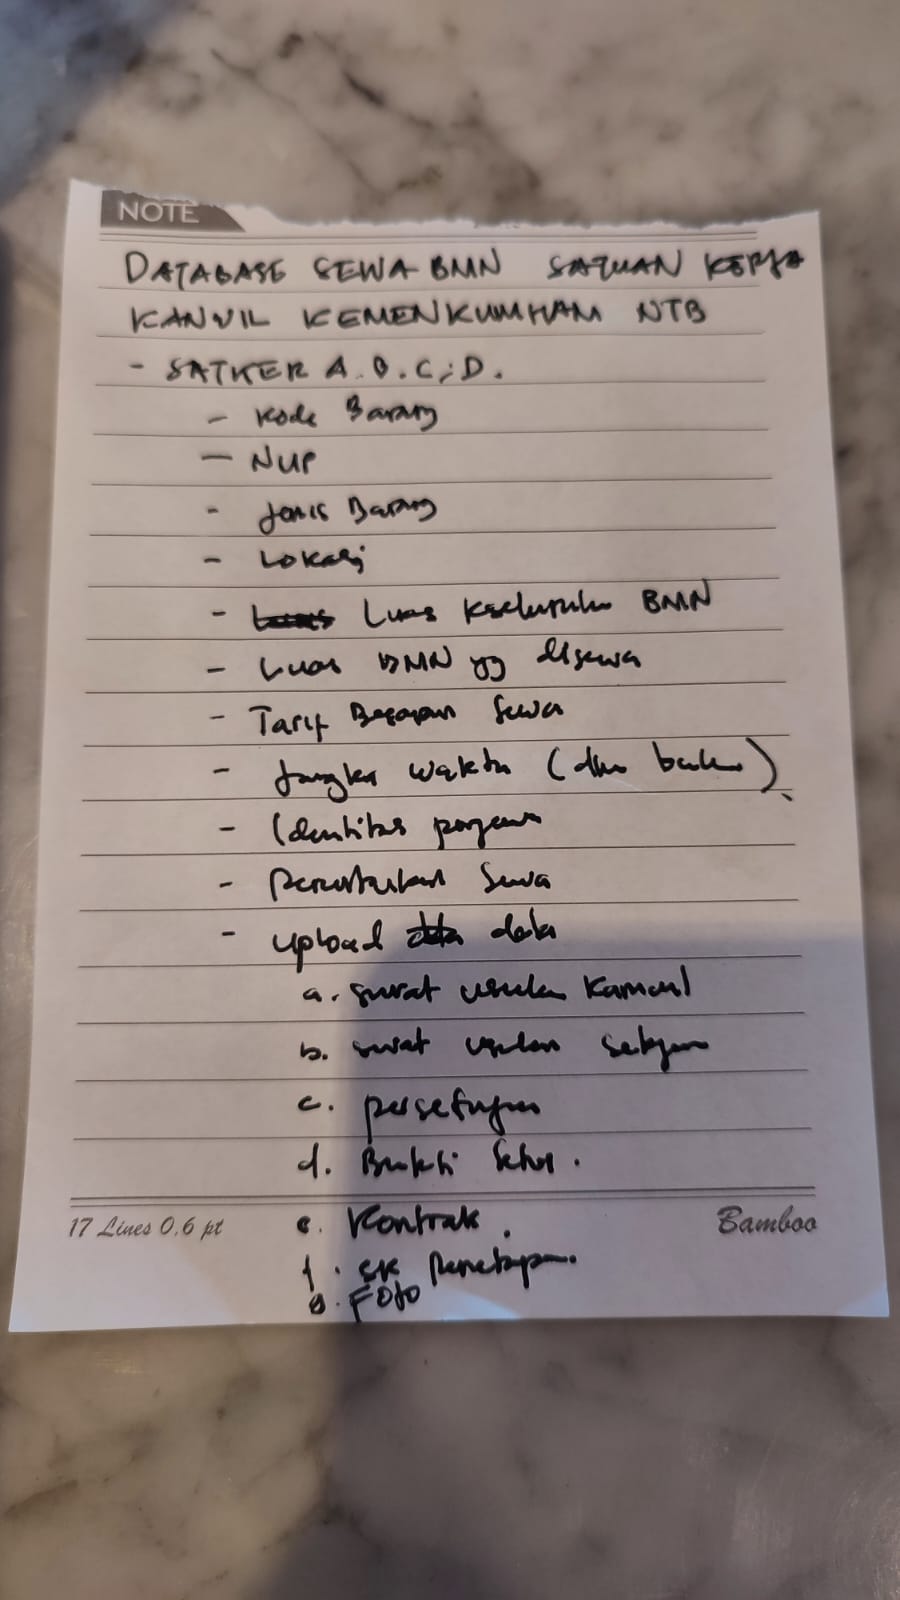 NOTE
DATABASE SEWA BMN SATUAN KERJA
KANWIL KEMENKUMHAM NTB
- SATKER A.B.C,D.
- Kode Barang
- NUP
- Jenis Barang
- Lokasi
- Luas Keseluruhan BMN
- Luas BMN yg disewa
- Tarif Sewa
- Jangka waktu (dlm bulan)
- Identitas penyewa
- Peruntukan Sewa
- Upload data
a. surat usulan Kanwil
b. surat usulan Sekjen
c. persetujuan
d. Bukti Setor.
17 Lines 0,6 pt e. Kontrak. Bamboo
f. SK Penetapan.
g. FOTO